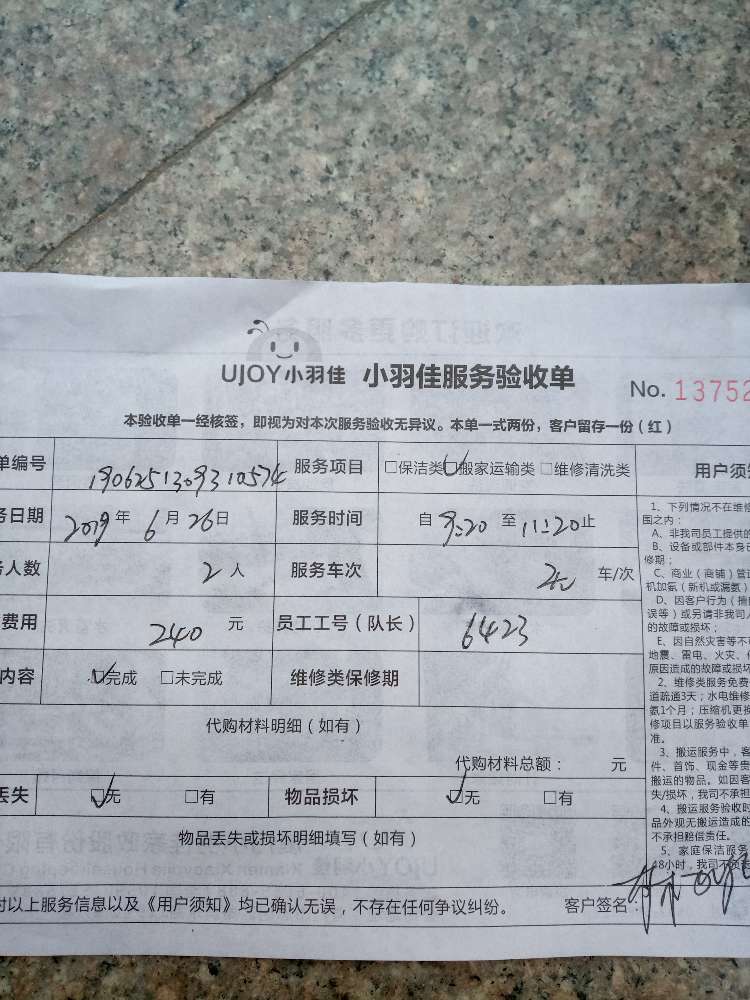 UJOY小羽佳 小羽佳服务验收单 No. 13752
本验收单一经核签，即视为对本次服务验收无异议。本单一式两份，客户留存一份（红）
单编号 1906251309310574 服务项目 □保洁类 □搬家运输类 □维修清洗类 用户须知
务日期 2019年6月26日 服务时间 自9:20至11:20止
务人数 2人 服务车次 车/次
费用 240元 员工工号（队长） 6423
内容 □完成 □未完成 维修类保修期
代购材料明细（如有）
代购材料总额： 元
丢失 □无 □有 物品损坏 □无 □有
物品丢失或损坏明细填写（如有）
对以上服务信息以及《用户须知》均已确认无误，不存在任何争议纠纷。 客户签名：
1、下列情况不在维修
围之内：
A、非我司员工提供的
B、设备或部件本身已
修期；
C、商业（商铺）管
机加氨（新机或漏氨）
D、因客户行为（擅
误等）或另请非我司人
的故障或损坏；
E、因自然灾害等不可
地震、雷电、火灾、
原因造成的故障或损坏
2、维修类服务免费
道疏通3天；水电维修
氨1个月；压缩机更换
修项目以服务验收单
准。
3、搬运服务中，客
件、首饰、现金等贵
搬运的物品。如因客
失/损坏，我司不承担
4、搬运服务验收时
品外观无搬运造成的
不承担赔偿责任。
5、家庭保洁服务
48小时，我司不负